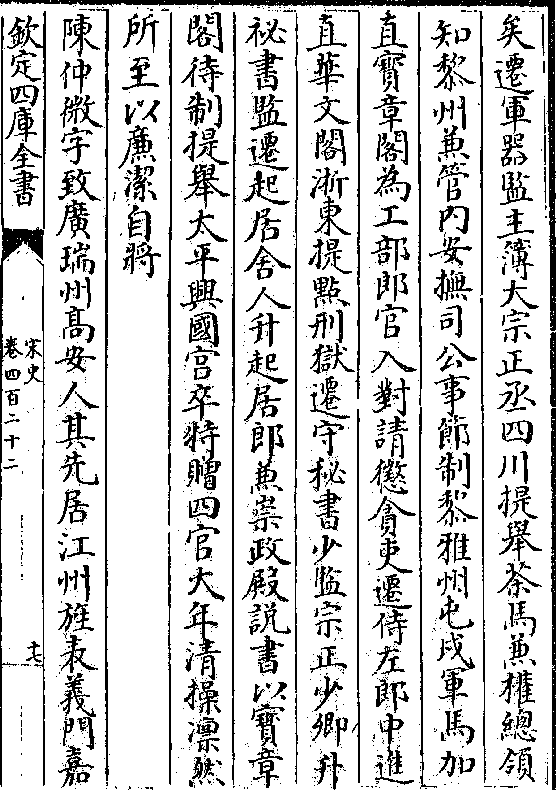 矣遷軍器監主簿大宗正丞四川提舉茶馬兼權總領
知黎州兼管內安撫司公事節制黎雅州屯戍軍馬加
直寶章閣為工部郎官入對請懲貪吏遷侍左郎中進
直華文閣浙東提點刑獄遷守秘書少監宗正少卿升
祕書監遷起居舍人升起居郎兼崇政殿說書以寶章
閣待制提舉太平興國宮卒特贈四官大年清操凛然
所至以廉潔自將
陳仲微字致廣瑞州高安人其先居江州旌表義門嘉
欽定四庫全書
宋史
卷四百二十二
十七